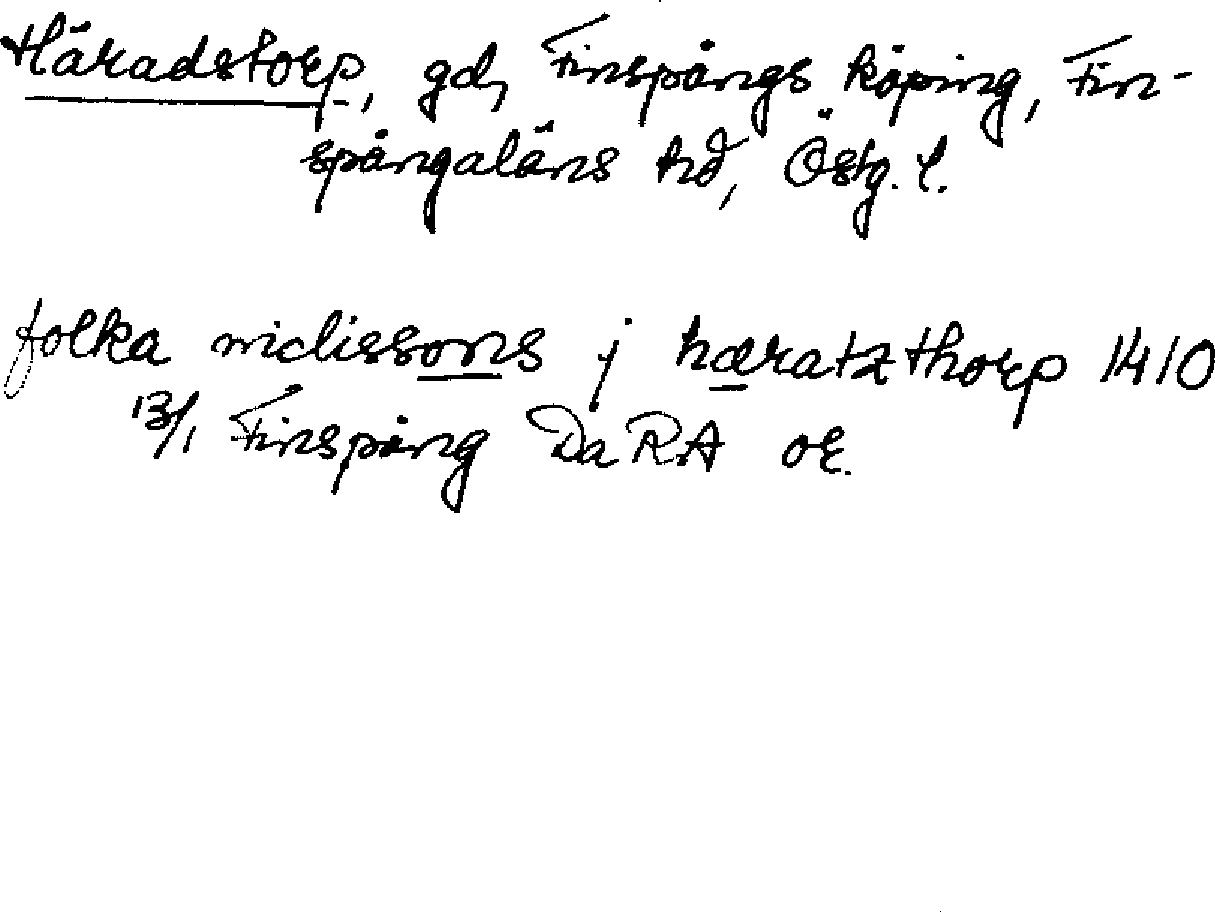 Häradstorp, gd, Finspångs köping, Fin-
spångaläns hd, Östg. l.
folka niclissons j hæratzthorp 1410
13/1 Finspång Da RA or.